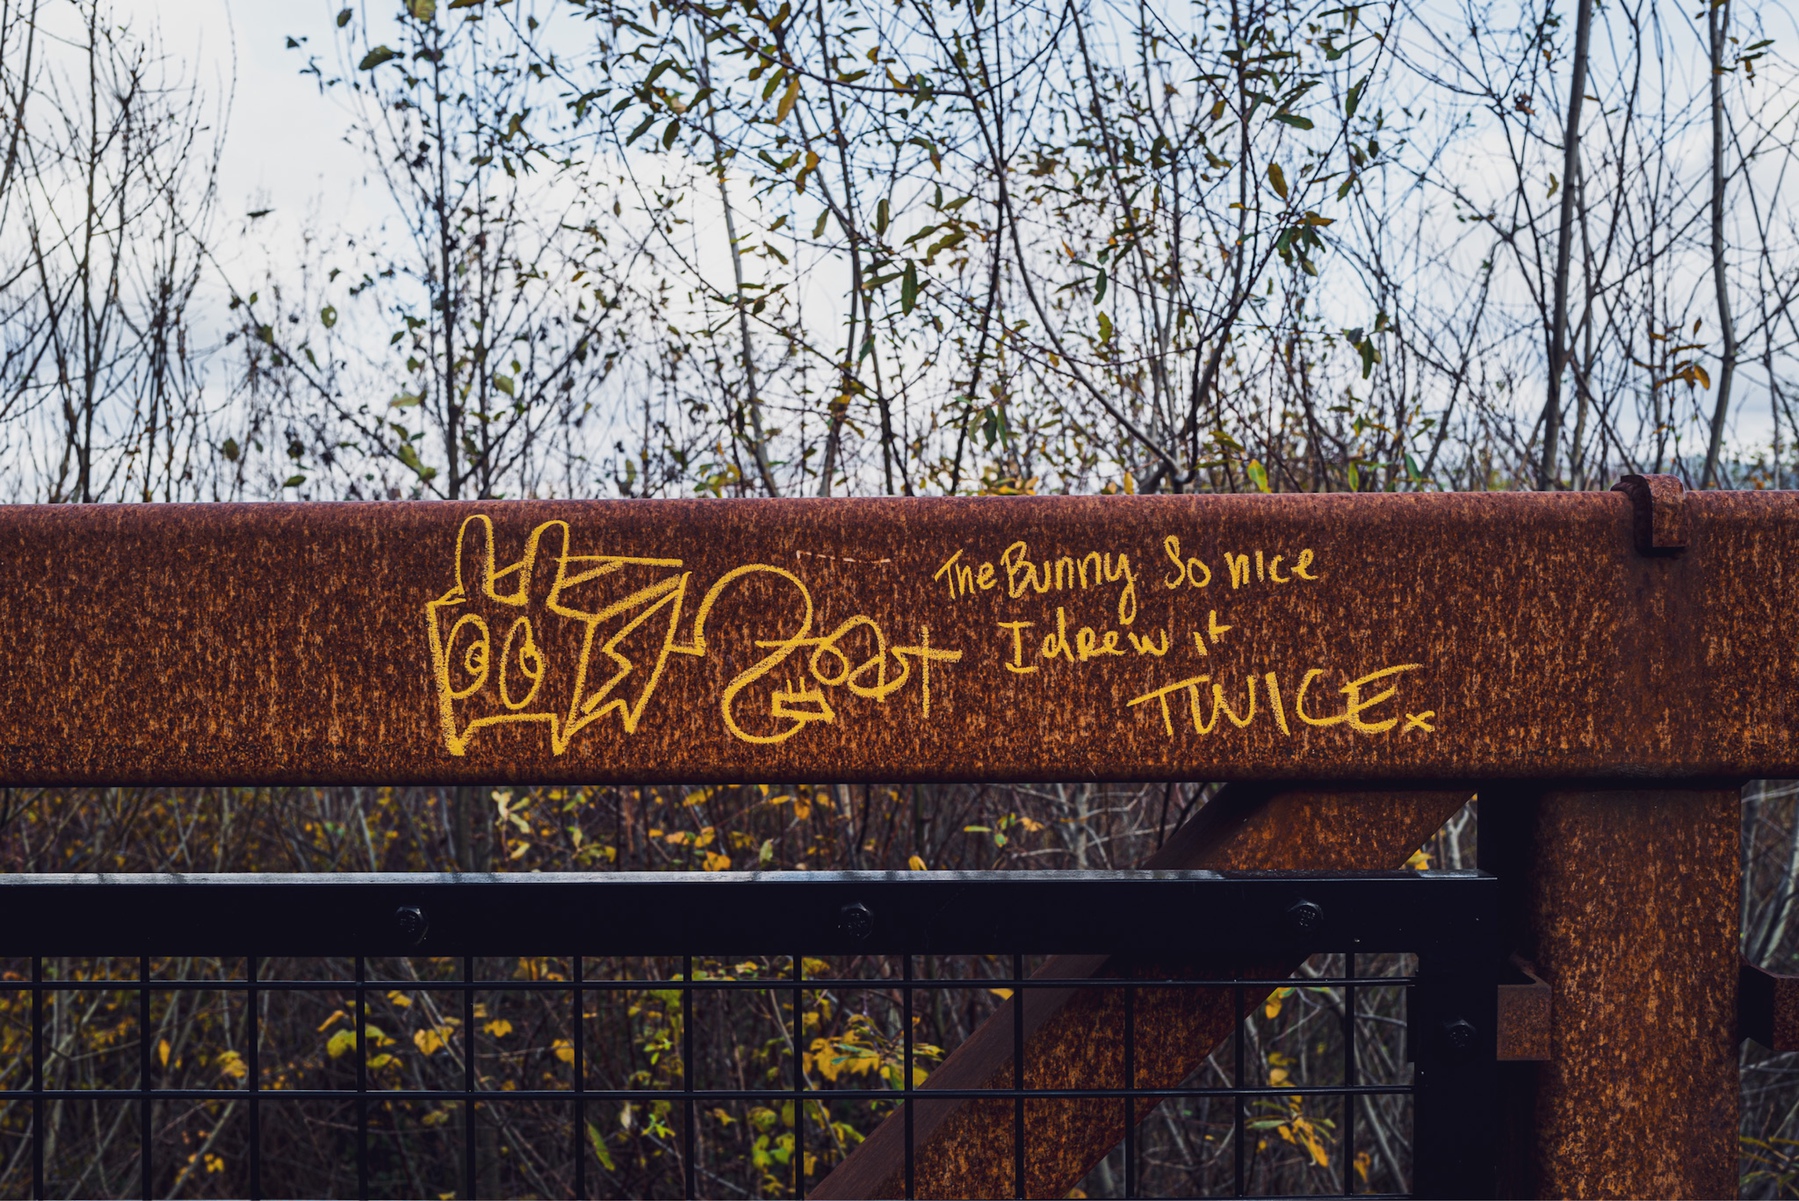 The Bunny So nice
I drew it
TWICE x